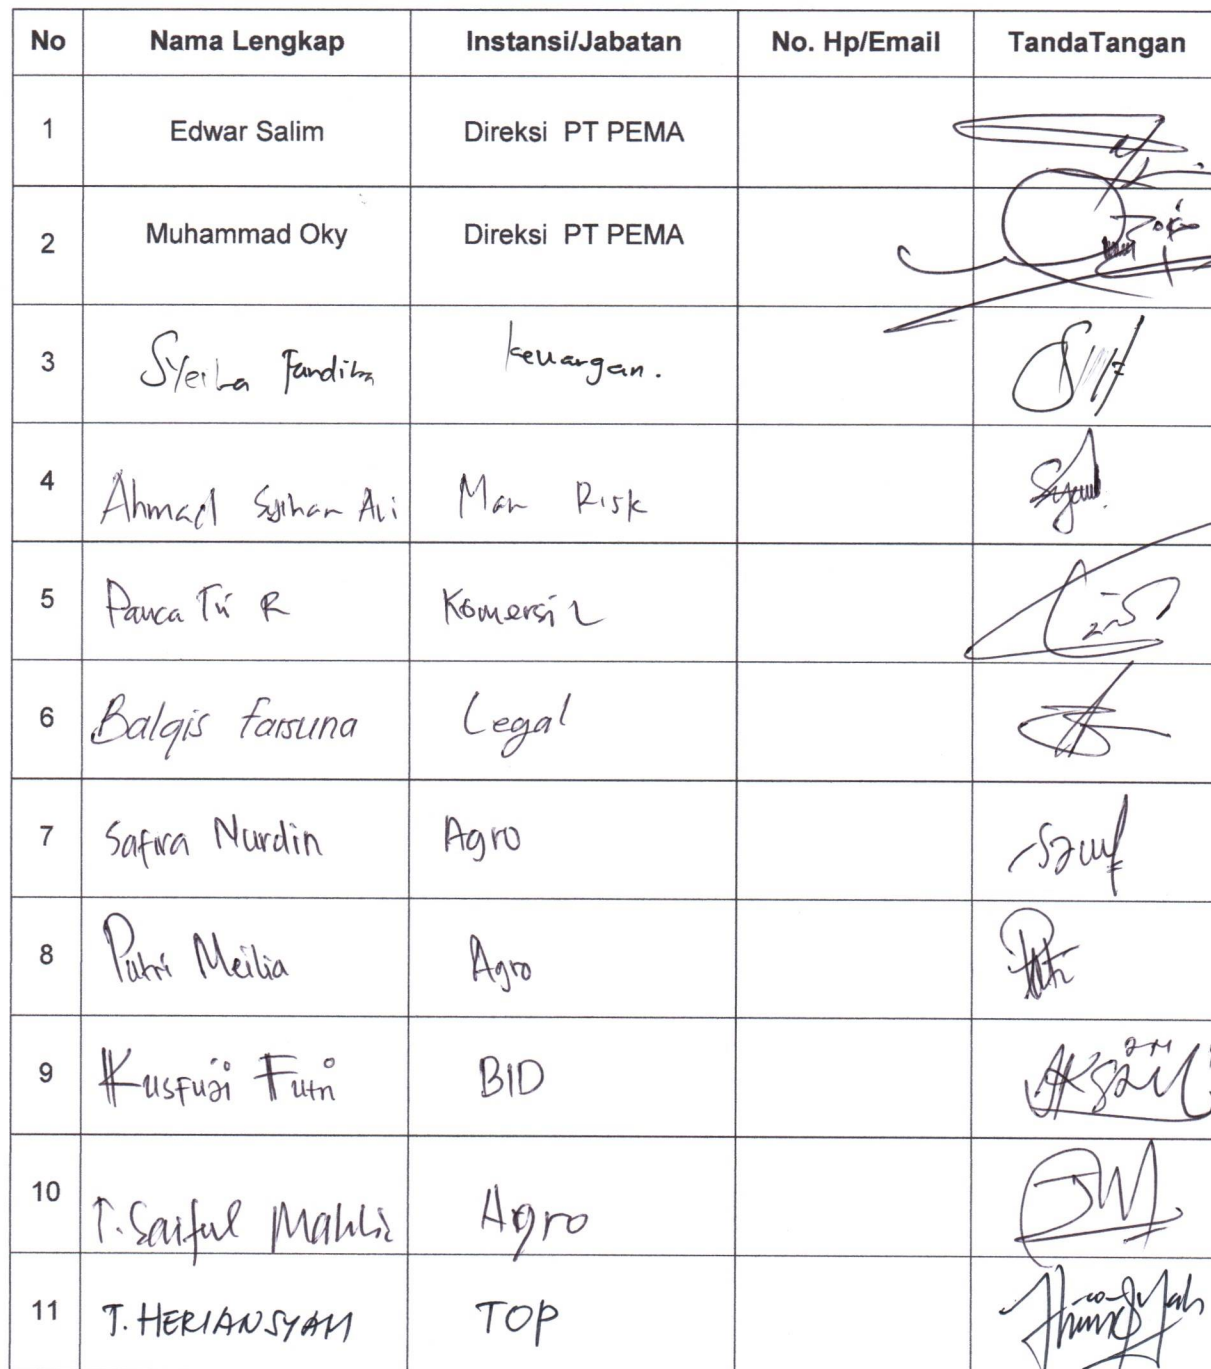 No Nama Lengkap Instansi/Jabatan No. Hp/Email TandaTangan
1 Edwar Salim Direksi PT PEMA
2 Muhammad Oky Direksi PT PEMA
3 Syeiba Fandiba keuangan.
4 Ahmad Ali Man Risk
5 Panca Tri R Komersil
6 Balqis farsuna Legal
7 Safira Nurdin Agro
8 Putri Meilia Agro
9 Kusfuji Futri BID
10 T. Saiful Mahli Agro
11 T. HERIANSYAH TOP